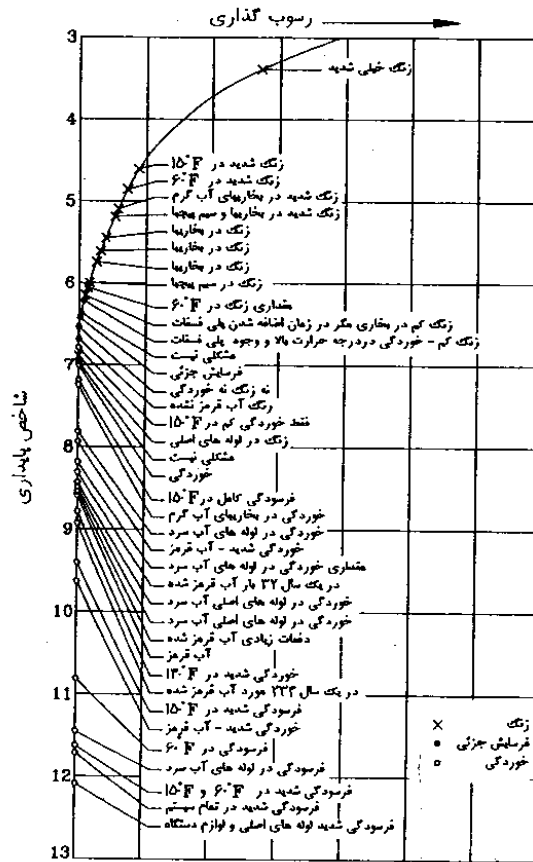 رسوب گذاری
3
زنگ خیلی شدید
4
زنگ شدید در ۱۵۰°F
زنگ شدید در ۶۰°F
5
زنگ شدید در بخاریهای آب گرم
زنگ شدید در بخاریها و سیم پیچها
زنگ در بخاریها
زنگ در بخاریها
زنگ در بخاریها
6
زنگ در سیم پیچها
مقداری زنگ در ۶۰°F
زنگ کم در بخاری مگر در زمان اضافه شدن پلی فسفات
زنگ کم - خوردگی دردرجه حرارت بالا و وجود پلی فسفات
مشکلی نیست
7
فرسایش جزئی
نه زنگ نه خوردگی
رنگ آب قرمز نشده
فقط خوردگی کم در ۱۵۰°F
زنگ در لوله های اصلی
8
مشکلی نیست
خوردگی
شاخص پایداری
فرسودگی کامل در ۱۵۰°F
خوردگی در بخاریهای آب گرم
خوردگی در لوله های آب سرد
9
خوردگی شدید - آب قرمز
مقداری خوردگی در لوله های آب سرد
در یک سال ۳۲ بار آب قرمز شده
خوردگی در لوله های اصلی آب سرد
10
خوردگی در لوله های اصلی آب سرد
دفعات زیادی آب قرمز شده
آب قرمز
خوردگی شدید در ۱۳۰°F
11
در یک سال ۲۳۳ مورد آب قرمز شده
فرسودگی شدید در ۱۵۰°F
خوردگی شدید - آب قرمز
فرسودگی در ۶۰°F
فرسودگی در لوله های آب سرد
12
فرسودگی شدید در ۶۰°F و ۱۵۰°F
فرسودگی شدید در تمام سیستم
فرسودگی شدید لوله های اصلی و لوازم دستگاه
13
زنگ
فرسایش جزئی
خوردگی